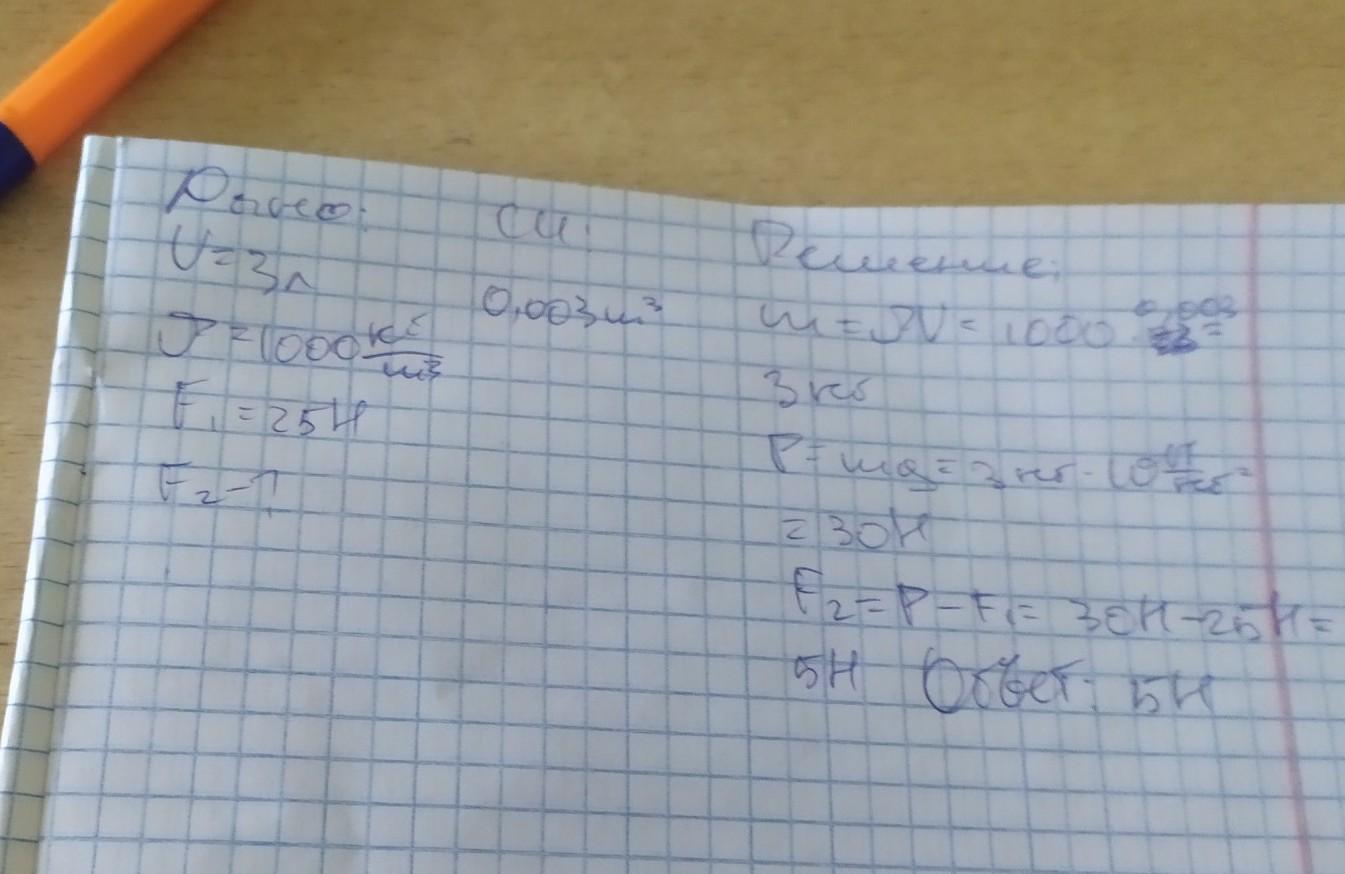 Дано:
V=3л
ρ=1000 кг/м³
F₁=25Н
F₂-?
СИ:
0,003м³
Решение:
m=ρV=1000·0,003=
3кг
P=mg=3кг·10Н/кг=
=30Н
F₂=P-F₁=30Н-25Н=
5Н Ответ: 5Н